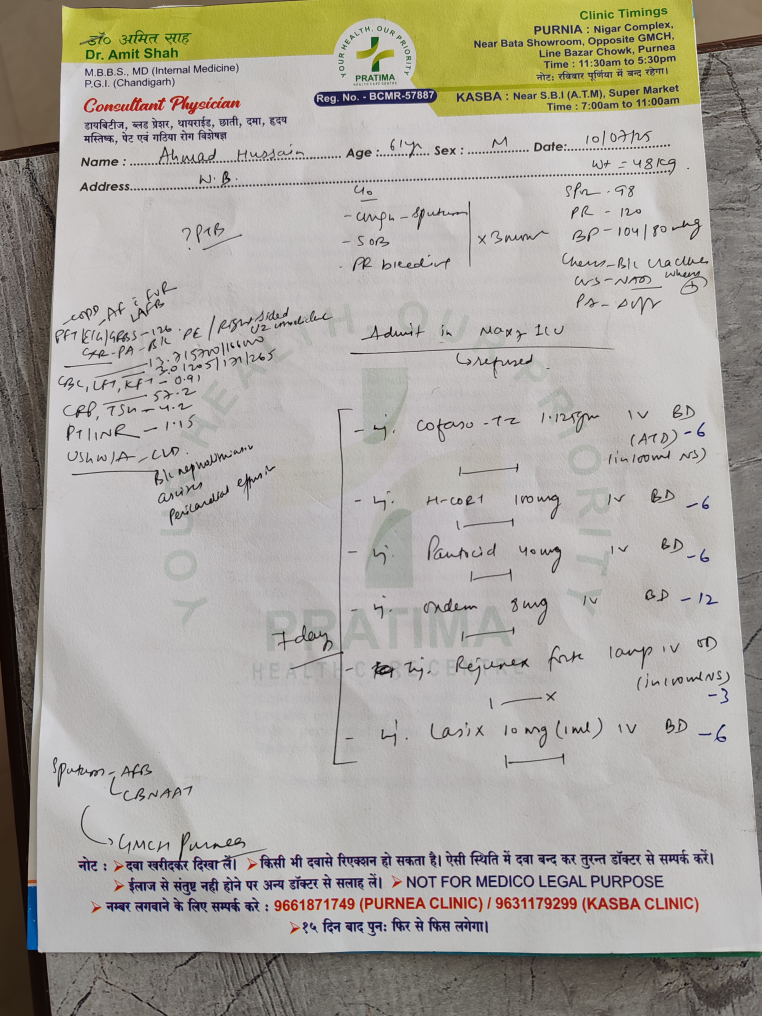 डॉ० अमित साह
Dr. Amit Shah
M.B.B.S., MD (Internal Medicine)
P.G.I. (Chandigarh)
Consultant Physician
डायबिटीज, ब्लड प्रेशर, थायराईड, छाती, दमा, हृदय
मस्तिष्क, पेट एवं गठिया रोग विशेषज्ञ
YOUR HEALTH, OUR PRIORITY
PRATIMA
HEALTH CARE CENTRE
Reg. No. - BCMR-57887
Clinic Timings
PURNIA : Nigar Complex,
Near Bata Showroom, Opposite GMCH,
Line Bazar Chowk, Purnea
Time : 11:30am to 5:30pm
नोट: रविवार पूर्णिया में बन्द रहेगा।
KASBA : Near S.B.I (A.T.M), Super Market
Time : 7:00am to 11:00am
Name : Ahmad Hussain Age : 61yr Sex : M Date: 10/07/25
Wt = 48kg.
Address W.B.
c/o
- cough - sputum
- SOB
- PR bleeding
x 3
? PTB
SPO2 - 98
PR - 120
BP - 104/80 mmHg
Chest - B/L
CVS - NAD
PA - Soft
- COPD - AF c FVR
LAFB
PFT/ECG/GRBS - 126
CXR-PA - B/L PE / Right sided
CBC, LFT, KFT - 0.91
CRP, TSH - 4.2
57.2
PT/INR - 1.15
USG W/A - CLD
B/L
ascites
Pericardial effusion
Admit in Max7 ICU
refused.
- inj. Cofaso-TZ 1.125gm IV BD - 6
(ATD)
(in 100ml NS)
- inj. H-CORT 100mg IV BD - 6
- inj. Pantocid 40mg IV BD - 6
- inj. ondem 8mg IV BD - 12
7 days
- inj. Rejunex forte 1amp IV OD
(in 100ml NS)
- 3
- inj. Lasix 10mg (1ml) IV BD - 6
Sputum - AFB
CBNAAT
GMCH Purnea
YOUR HEALTH OUR PRIORITY
PRATIMA
HEALTH CARE CENTRE
नोट : ➤दवा खरीदकर दिखा लें। ➤किसी भी दवासे रिएक्शन हो सकता है। ऐसी स्थिति में दवा बन्द कर तुरन्त डॉक्टर से सम्पर्क करें।
➤ईलाज से संतुष्ट नही होने पर अन्य डॉक्टर से सलाह लें। ➤NOT FOR MEDICO LEGAL PURPOSE
➤नम्बर लगवाने के लिए सम्पर्क करे : 9661871749 (PURNEA CLINIC) / 9631179299 (KASBA CLINIC)
➤१५ दिन बाद पुन: फिर से फिस लगेगा।